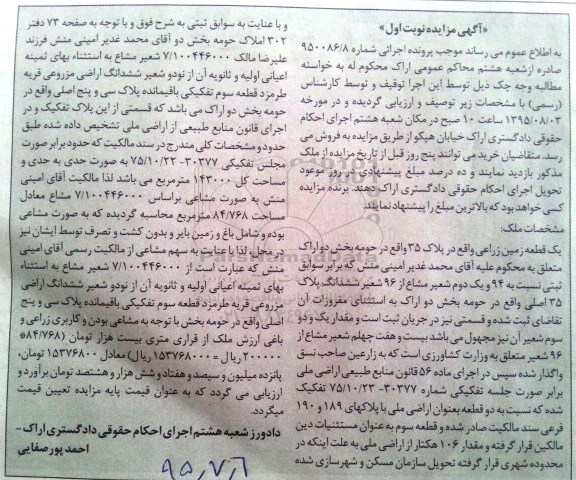 «آگهی مزایده نوبت اول»
به اطلاع عموم می رساند موجب پرونده اجرائی شماره ۹۵۰۰۸۶/۸
صادره از شعبه هشتم محاکم عمومی اراک محکوم له به خواسته
مطالبه وجه چک ذیل توسط این اجرا توقیف و توسط کارشناس
(رسمی) با مشخصات زیر توصیف و ارزیابی گردیده و در مورخه
۱۳۹۵/۰۸/۰۳ ساعت ۱۰ صبح در مکان شعبه هشتم اجرای احکام
حقوقی دادگستری اراک خیابان هپکو از طریق مزایده به فروش می
رسد. متقاضیان خرید می توانند پنج روز قبل از تاریخ مزایده از ملک
مذکور بازدید نمایند و ده درصد مبلغ پیشنهادی در روز موعود
تحویل اجرای احکام حقوقی دادگستری اراک دهند. برنده مزایده
کسی خواهد بود که بالاترین مبلغ را پیشنهاد نمایند
مشخصات ملک:
یک قطعه زمین زراعی واقع در پلاک ۳۵ واقع در حومه بخش دو اراک
متعلق به محکوم علیه آقای محمد غدیر امینی منش که برابر سوابق
ثبتی نسبت به ۹۴ و یک دوم شعیر مشاع از ۹۶ شعیر ششدانگ پلاک
۳۵ اصلی واقع در حومه بخش دو اراک به استثنای مفروزات آن
تقاضای ثبت شده و قسمتی نیز در جریان ثبت است و مقدار یک و دو
سوم شعیر آن نیز مجهول می باشد بیست و هفت چهلم شعیر مشاع از
۹۶ شعیر متعلق به وزارت کشاورزی است که به زارعین صاحب نسق
واگذار شده سپس در اجرای ماده ۵۶ قانون منابع طبیعی اراضی ملی
برابر صورت جلسه تفکیکی شماره ۳۰۳۷۷-۷۵/۱۰/۲۳ تفکیک
شده که نسبت به دو قطعه بعنوان اراضی ملی با پلاکهای ۱۸۹ و ۱۹۰
فرعی سند مالکیت صادر شده و قطعه سوم به عنوان مستثنیات دین
مالکین قرار گرفته و مقدار ۱۰۶ هکتار از اراضی ملی به علت اینکه در
محدوده شهری قرار گرفته تحویل سازمان مسکن و شهرسازی شده
و با عنایت به سوابق ثبتی به شرح فوق و با توجه به صفحه ۷۳ دفتر
۳۰۲ املاک حومه بخش دو آقای محمد غدیر امینی منش فرزند
علیرضا مالک ۷/۱۰۰۴۴۶۰۰۰ شعیر مشاع به استثناء بهای ثمینه
اعیانی اولیه و ثانویه آن از نود و شعیر ششدانگ اراضی مزروعی قریه
طرمزد قطعه سوم تفکیکی باقیمانده پلاک سی و پنج اصلی واقع در
حومه بخش دو اراک می باشد که قسمتی از این پلاک تفکیک و در
اجرای قانون منابع طبیعی از اراضی ملی تشخیص داده شده طبق
حدود و مشخصات کلی مندرج در سند مالکیت که حدود برابر صورت
مجلس تفکیکی ۳۰۳۷۷-۷۵/۱۰/۲۲ به صورت حدی به حدی و
مساحت کل ۱۴۳۰۰۰ مترمربع می باشد لذا مالکیت آقای امینی
منش به صورت مشاعی براساس ۷/۱۰۰۴۴۶۰۰۰ مشاع معادل
مساحت ۸۴/۷۶۸ مترمربع محاسبه گردیده که به صورت مشاعی
بوده و شامل باغ و زمین بایر و بدون کشت و تصرف توسط ایشان نیز
در محل لذا با عنایت به سهم مشاعی از مالکیت رسمی آقای امینی
منش که عبارت است از ۷/۱۰۰۴۴۶۰۰۰ شعیر مشاع به استثناء
بهای ثمینه اعیانی اولیه و ثانویه آن از نود و شعیر ششدانگ اراضی
مزروعی قریه طرمزد قطعه سوم تفکیکی باقیمانده پلاک سی و پنج
اصلی واقع در حومه بخش با توجه به مشاعی بودن و کاربری زراعی و
باغی ارزش ملک از قراری متری بیست هزار تومان (۸۴/۷۶۸*
۲۰۰۰۰۰ ریال = ۱۵۳۷۶۸۰۰۰ ریال) معادل ۱۵۳۷۶۸۰۰ تومان،
پانزده میلیون و سیصد و هفتاد و شش هزار و هشتصد تومان برآورد و
ارزیابی می گردد که به عنوان قیمت پایه مزایده تعیین قیمت
میگردد.
دادورز شعبه هشتم اجرای احکام حقوقی دادگستری اراک-
احمد پورصفایی
۹۵,۷,۶